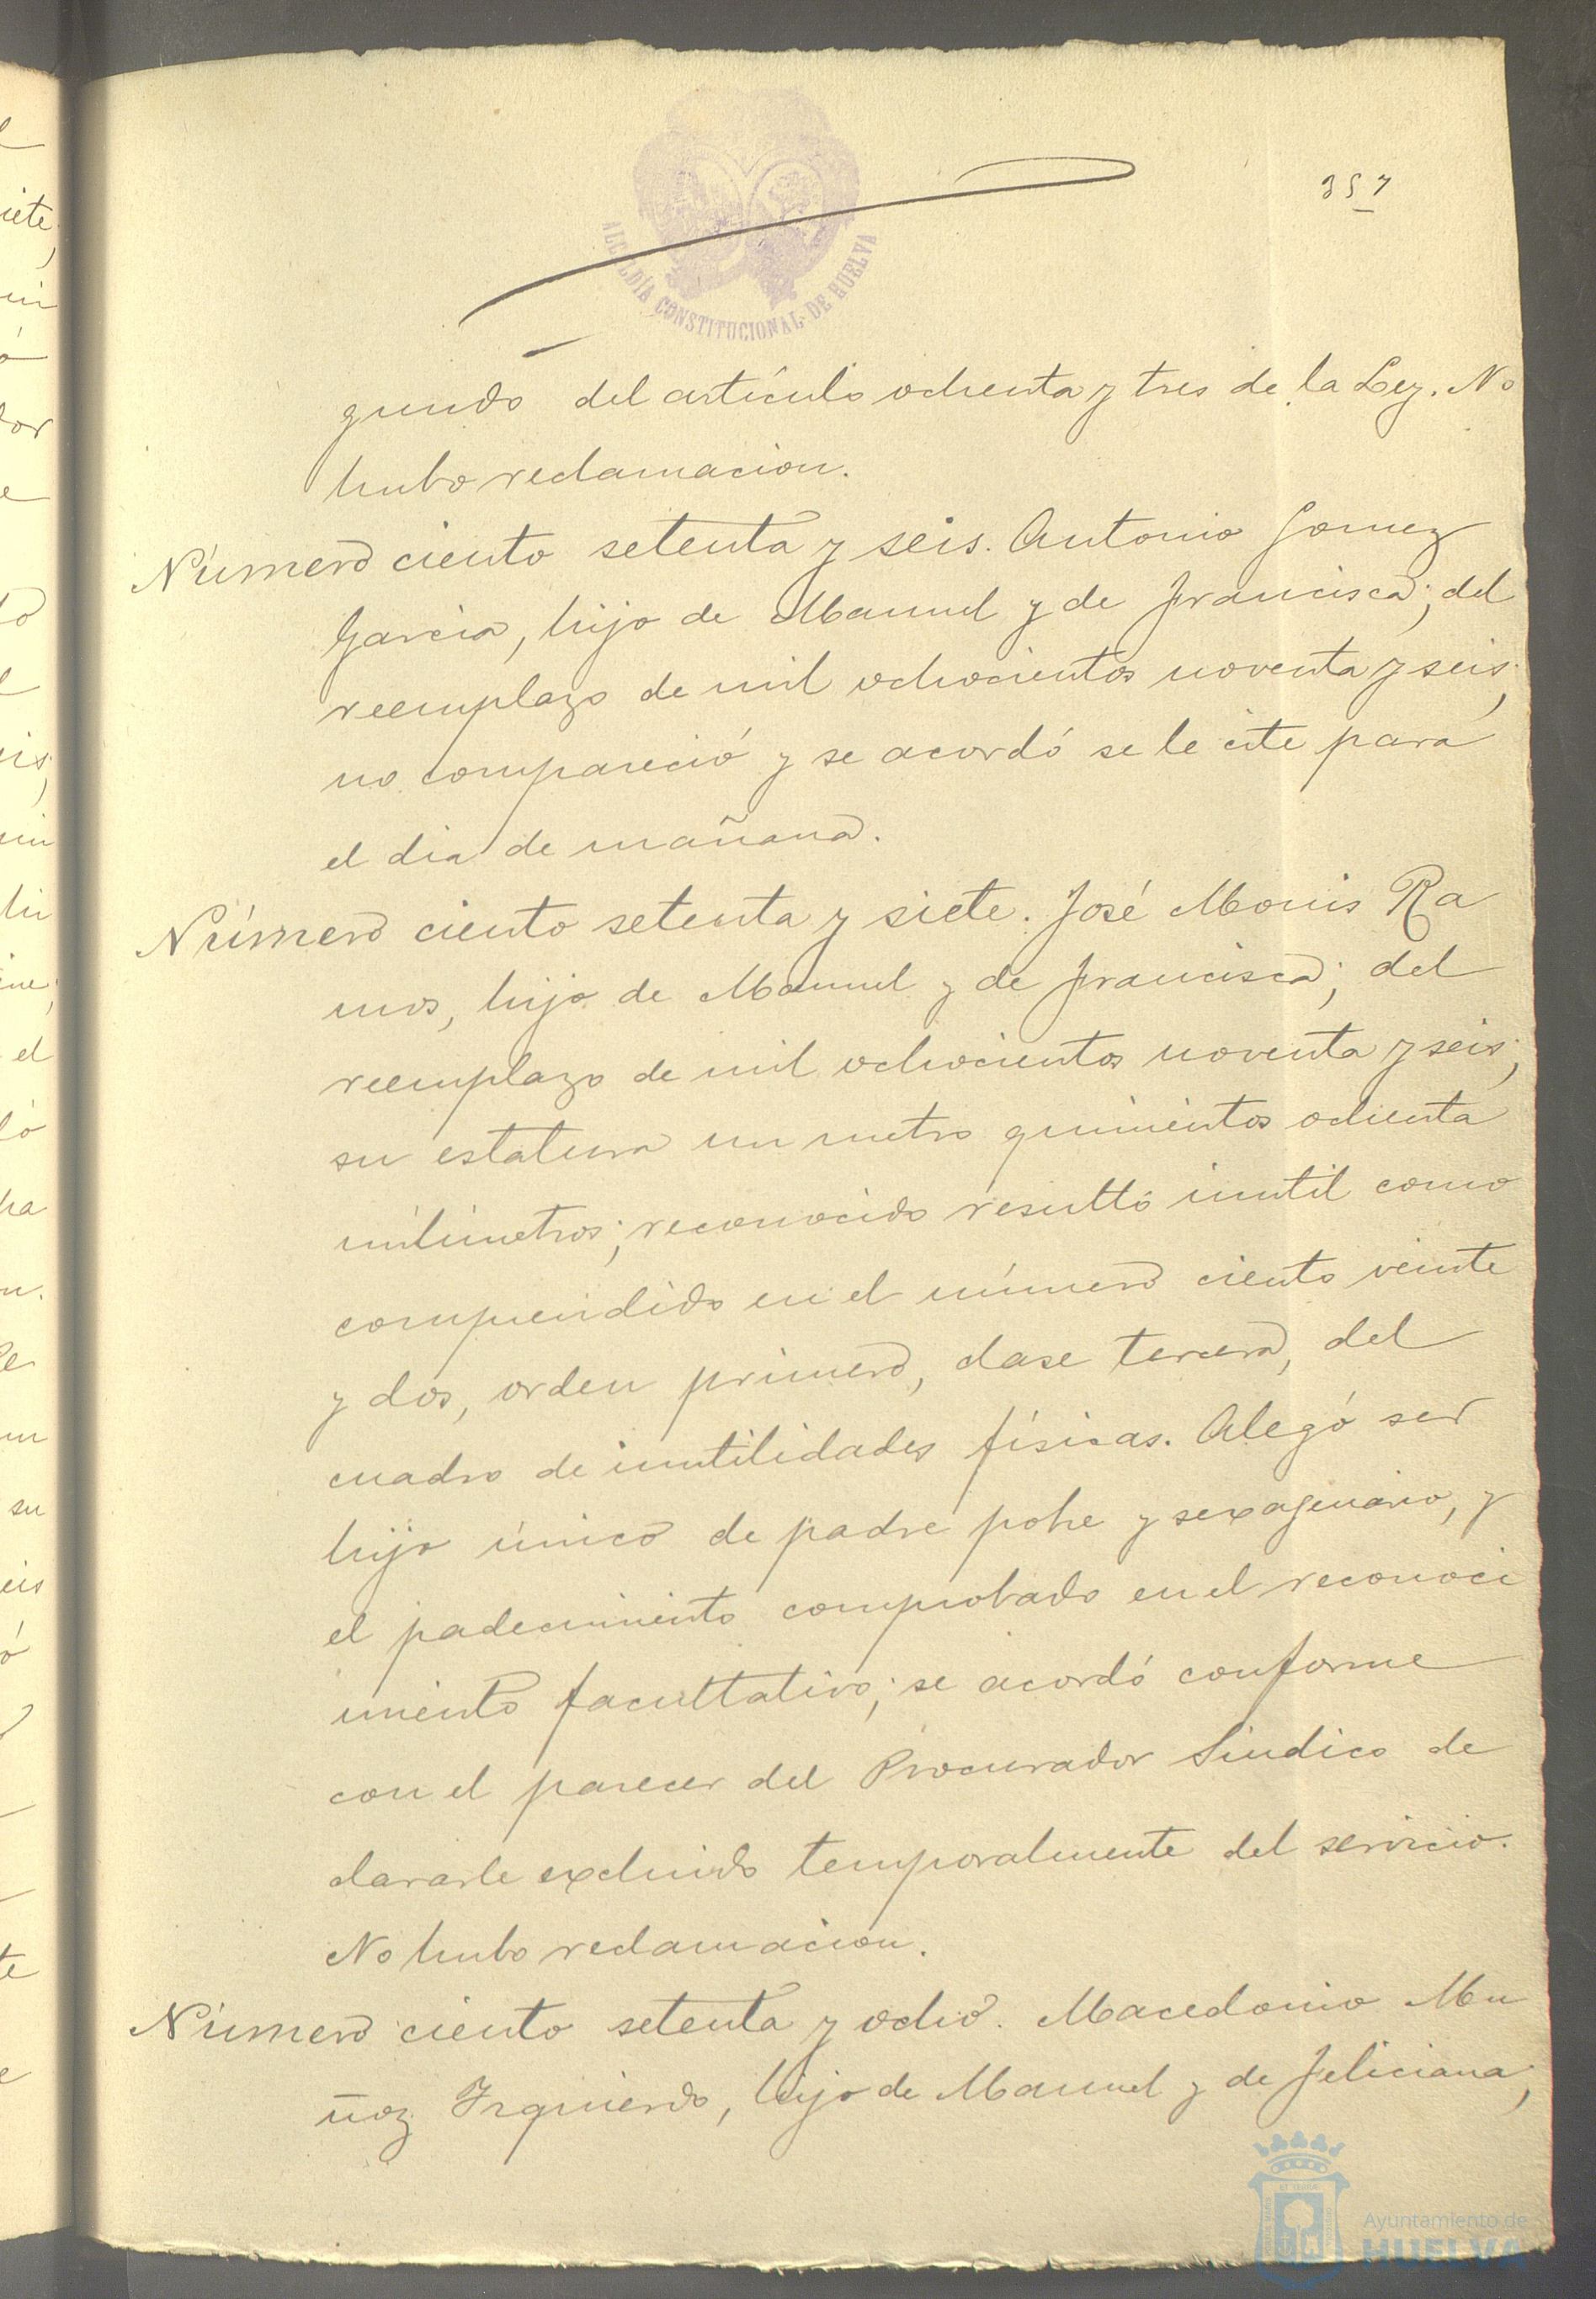 357
ALCALDÍA CONSTITUCIONAL DE HUELVA
gundo del artículo ochenta y tres de la Ley. No
hubo reclamacion.
Número ciento setenta y seis. Antonio Gomez
Garcia, hijo de Manuel y de Francisca; del
reemplazo de mil ochocientos noventa y seis;
no compareció y se acordó se le cite para
el dia de mañana.
Número ciento setenta y siete. José Monis Ra
mos, hijo de Manuel y de Francisca; del
reemplazo de mil ochocientos noventa y seis;
su estatura un metro quinientos ochenta
milímetros; reconocido resultó inutil como
comprendido en el número ciento veinte
y dos, orden primero, clase tercera, del
cuadro de inutilidades físicas. Alegó ser
hijo único de padre pobre y sexagenario, y
el padecimiento comprobado en el reconoci
miento facultativo; se acordó conforme
con el parecer del Procurador Sindico de
clararle excluido temporalmente del servicio.
No hubo reclamacion.
Número ciento setenta y ocho. Macedonio Mu
ñoz Izquierdo, hijo de Manuel y de Feliciana;
Ayuntamiento de
HUELVA